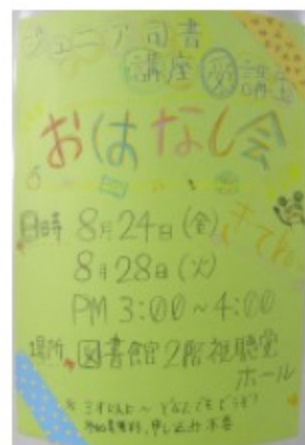 ジュニア司書
講座受講生
おはなし会
きてね
日時 8月24日(金)
8月28日(火)
PM 3:00～4:00
場所 図書館2階視聴覚
ホール
参加費無料、申し込み不要